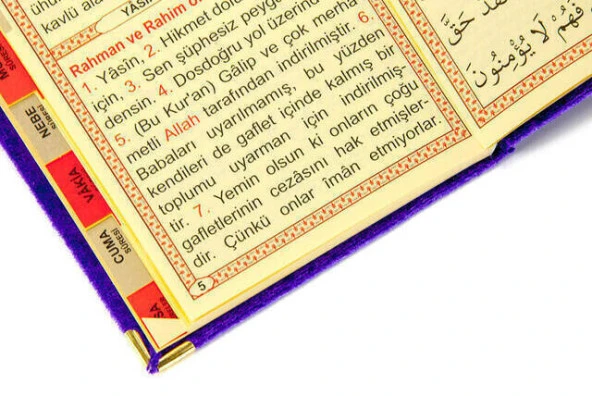 kavlü
YÂSİN
Rahman ve Rahim
1. Yâsîn, 2. Hikmet
için, 3. Sen şüphesiz
densin. 4. Dosdoğru yol
5. (Bu Kur'an) Gâlip ve çok merha-
metli Allah tarafından indirilmiştir. 6.
Babaları uyarılmamış, bu yüzden
kendileri de gaflet içinde kalmış bir
toplumu uyarman için indirilmiş-
tir. 7. Yemin olsun ki onların çoğu
gafletlerinin cezâsını hak etmişler-
dir. Çünkü onlar îmân etmiyorlar.
5
حَقَّ
فَهُمْ لَا يُؤْمِنُونَ
NEBE
SÛRESİ
VÂKIA
CUMA
SÛRESİ